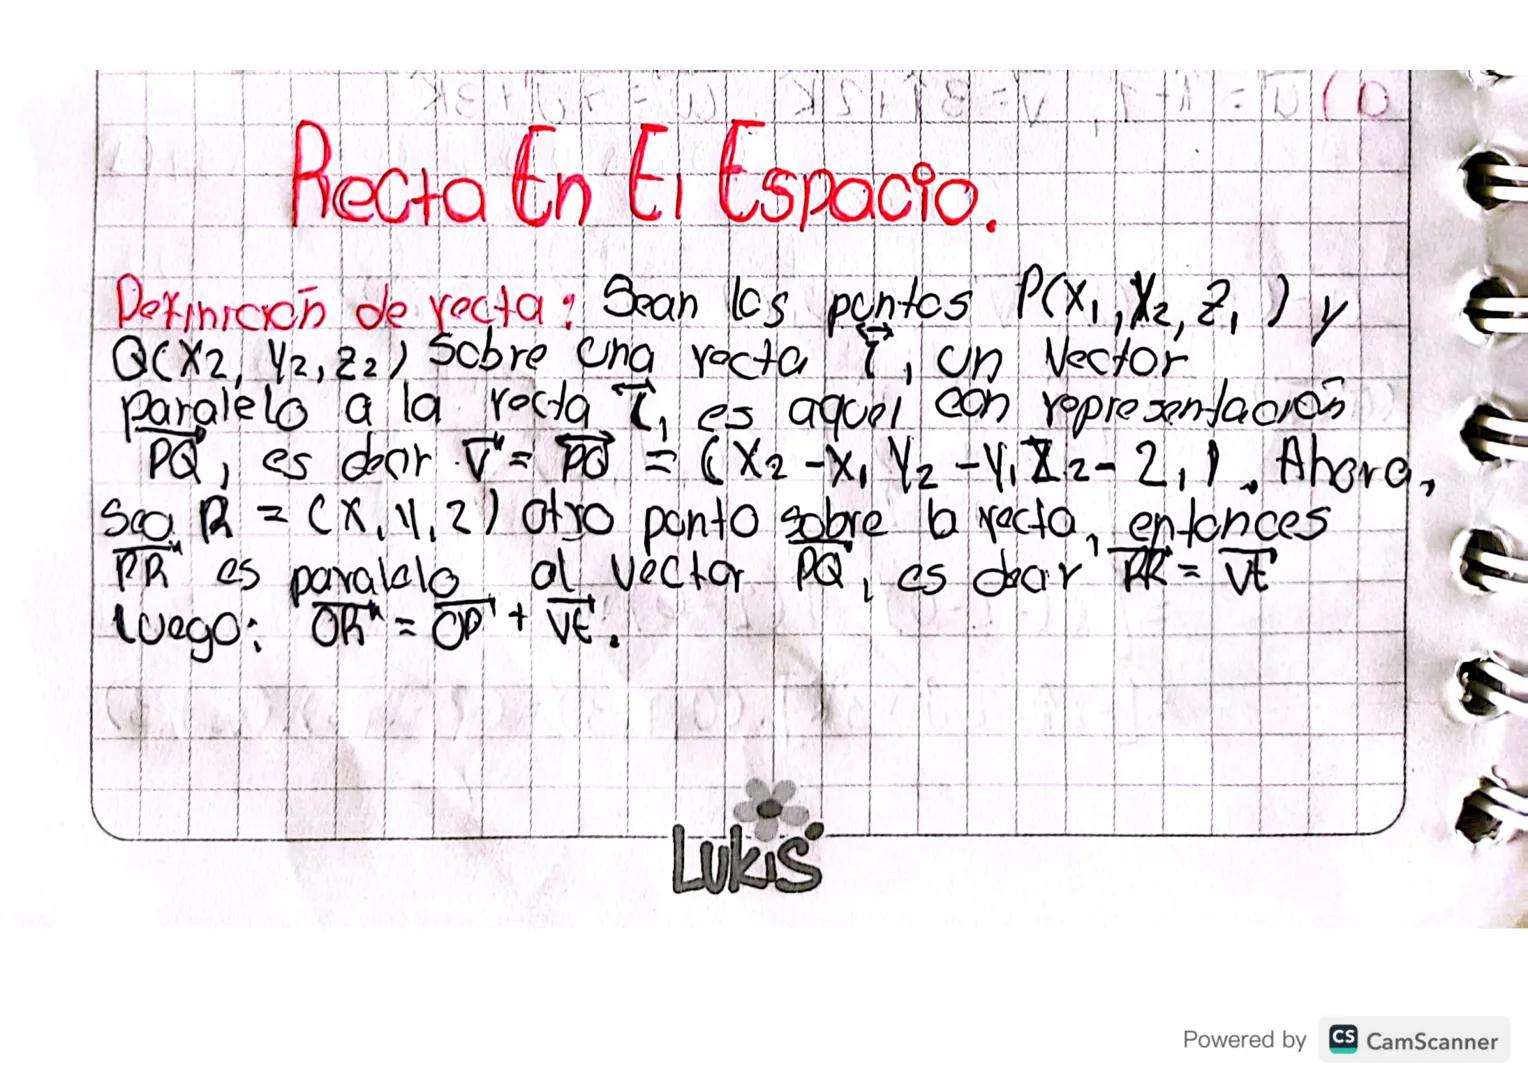 Recta En El Espacio.
Definición de recta: Sean los puntos P(X₁, X₂, Z₁) y
Q(X₂, Y₂, Z₂) Sobre una recta l, un Vector
paralelo a la recta l, es aquel con representación
PQ, es decir V = PQ = (X₂ - X₁ Y₂ - Y₁ Z₂ - Z₁). Ahora,
sea R = (X, Y, Z) otro punto sobre la recta, entonces
PR es paralelo al vector PQ, es decir PR = Vt
luego: OR = OP + Vt.
Lukis
Powered by CS CamScanner